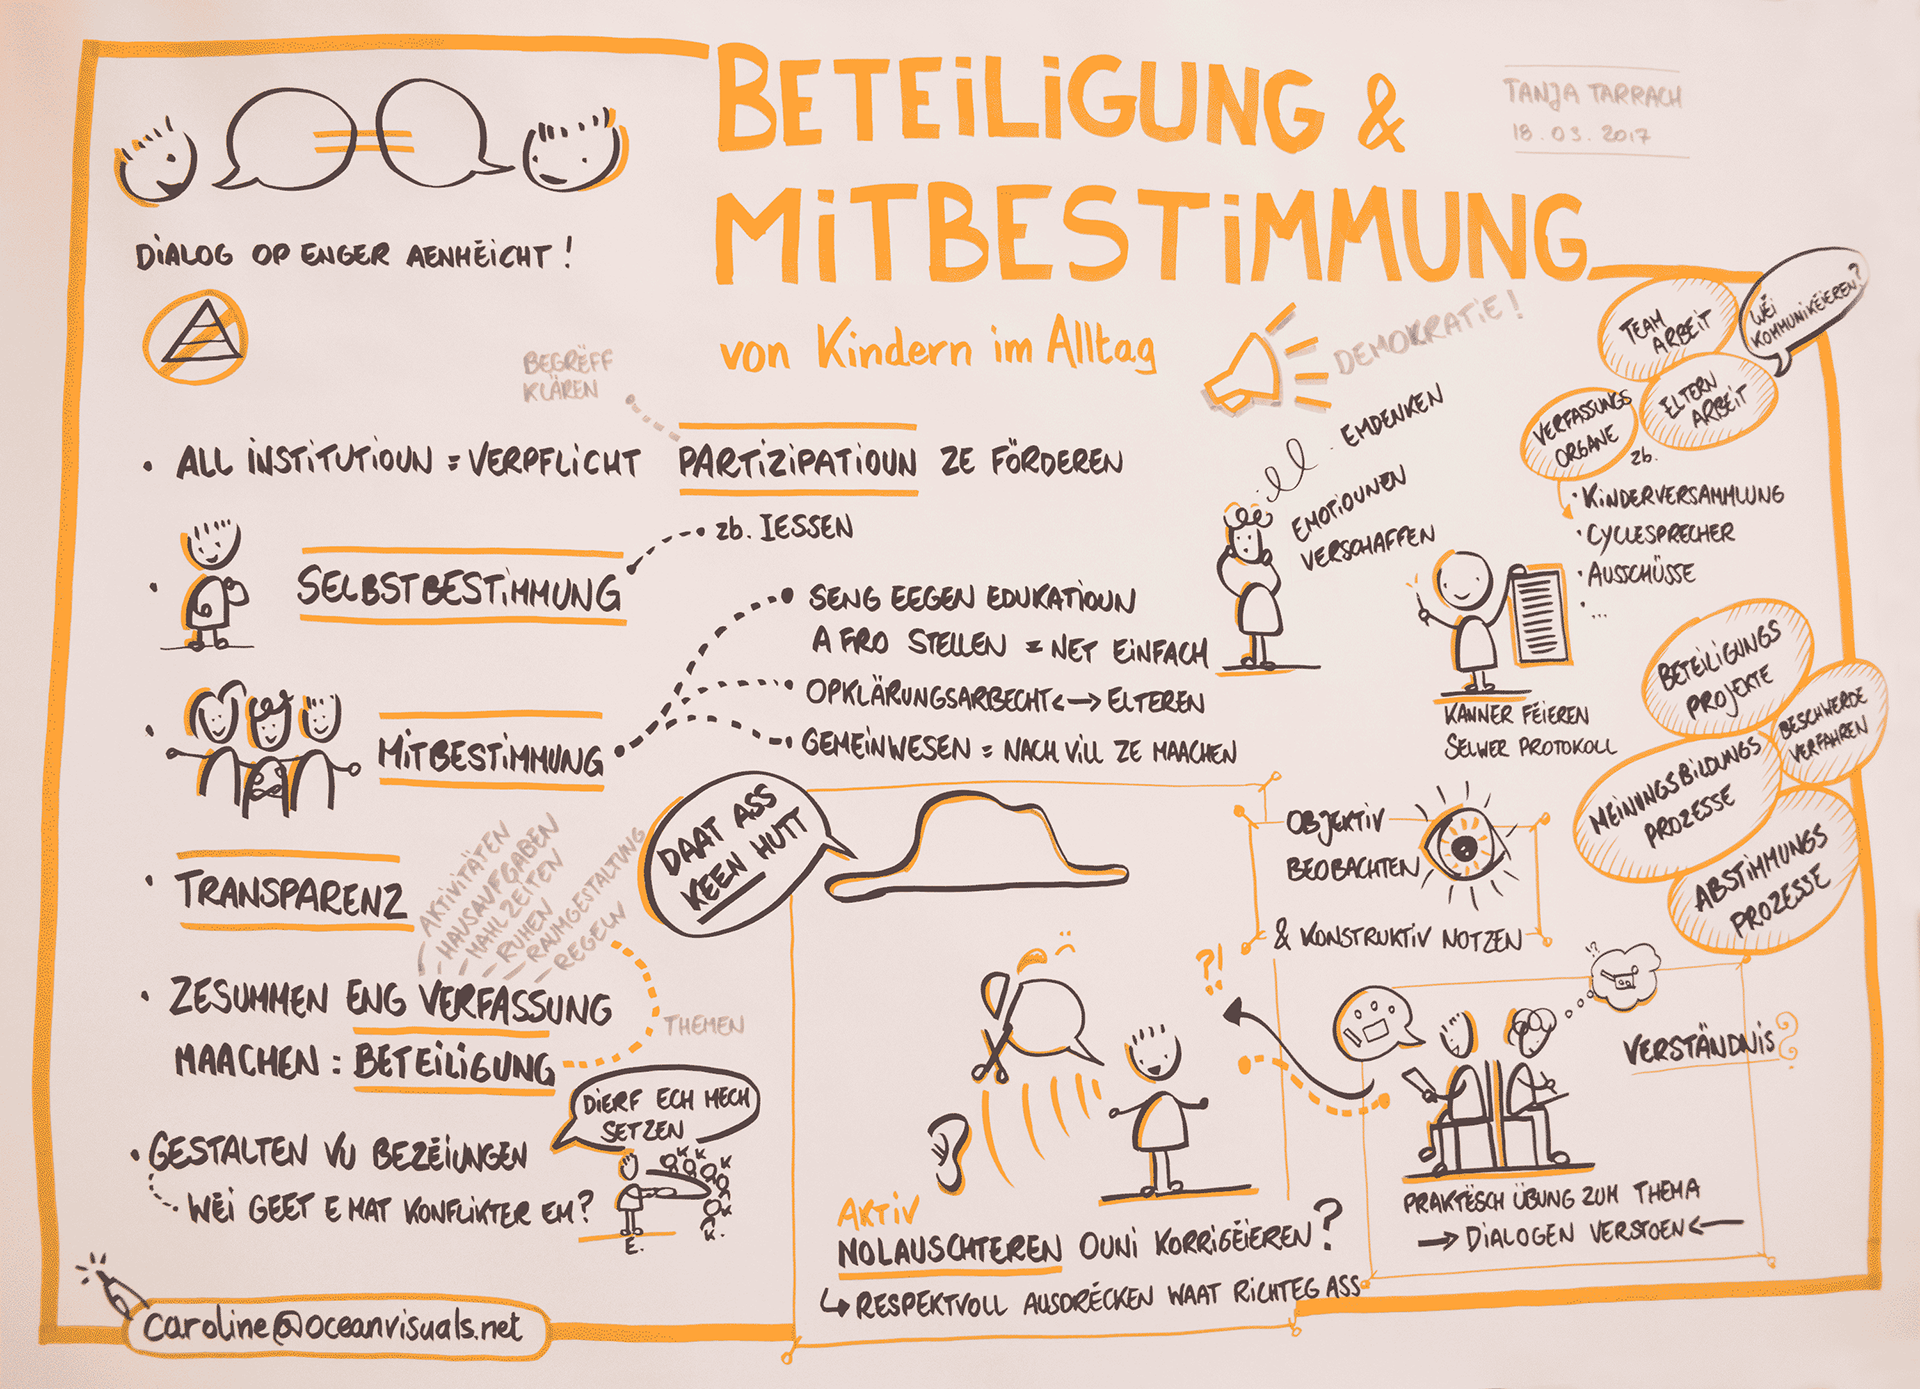 BETEILIGUNG &
MITBESTIMMUNG
von Kindern im Alltag
TANJA TARRACH
18.03.2017
DIALOG OP ENGER AENHÉICHT!
BEGRËFF
KLÄREN
DEMOKRATIE!
• ALL INSTITUTIOUN = VERPFLICHT PARTIZIPATIOUN ZE FÖRDEREN
• SELBSTBESTIMMUNG
zb. IESSEN
• MITBESTIMMUNG
SENG EEGEN EDUKATIOUN
A FRO STELLEN = NET EINFACH
OPKLÄRUNGSARBECHT <-> ELTEREN
GEMEINWESEN = NACH VILL ZE MAACHEN
• TRANSPARENZ
AKTIVITÄTEN
HAUSAUFGABEN
MAHLZEITEN
RUHEN
RAUMGESTALTUNG
REGELN
• ZESUMMEN ENG VERFASSUNG
MAACHEN = BETEILIGUNG
THEMEN
• GESTALTEN VU BEZÉIUNGEN
WÉI GEET E MAT KONFLIKTER EM?
DIERF ECH MECH
SETZEN
E.
K
K
K
K
K.
caroline@oceanvisuals.net
EMDENKEN
EMOTIOUNEN
VERSCHAFFEN
TEAM
ARBEIT
WÉI
KOMMUNIKÉIEREN?
ELTERN
ARBEIT
VERFASSUNGS
ORGANE
zb.
• KINDERVERSAMMLUNG
• CYCLESPRECHER
• AUSSCHÜSSE
• ...
KANNER FÉIEREN
SELWER PROTOKOLL
BETEILIGUNGS
PROJEKTE
BESCHWERDE
VERFAHREN
MEINUNGSBILDUNGS
PROZESSE
ABSTIMMUNGS
PROZESSE
DAAT ASS
KEEN HUTT
OBJEKTIV
BEOBACHTEN
& KONSTRUKTIV NOTZEN
?!
!?
VERSTÄNDNIS?
PRAKTËSCH ÜBUNG ZUM THEMA
→ DIALOGEN VERSTOEN ←
AKTIV
NOLAUSCHTEREN OUNI KORRIGÉIEREN?
↳ RESPEKTVOLL AUSDRÉCKEN WAAT RICHTEG ASS